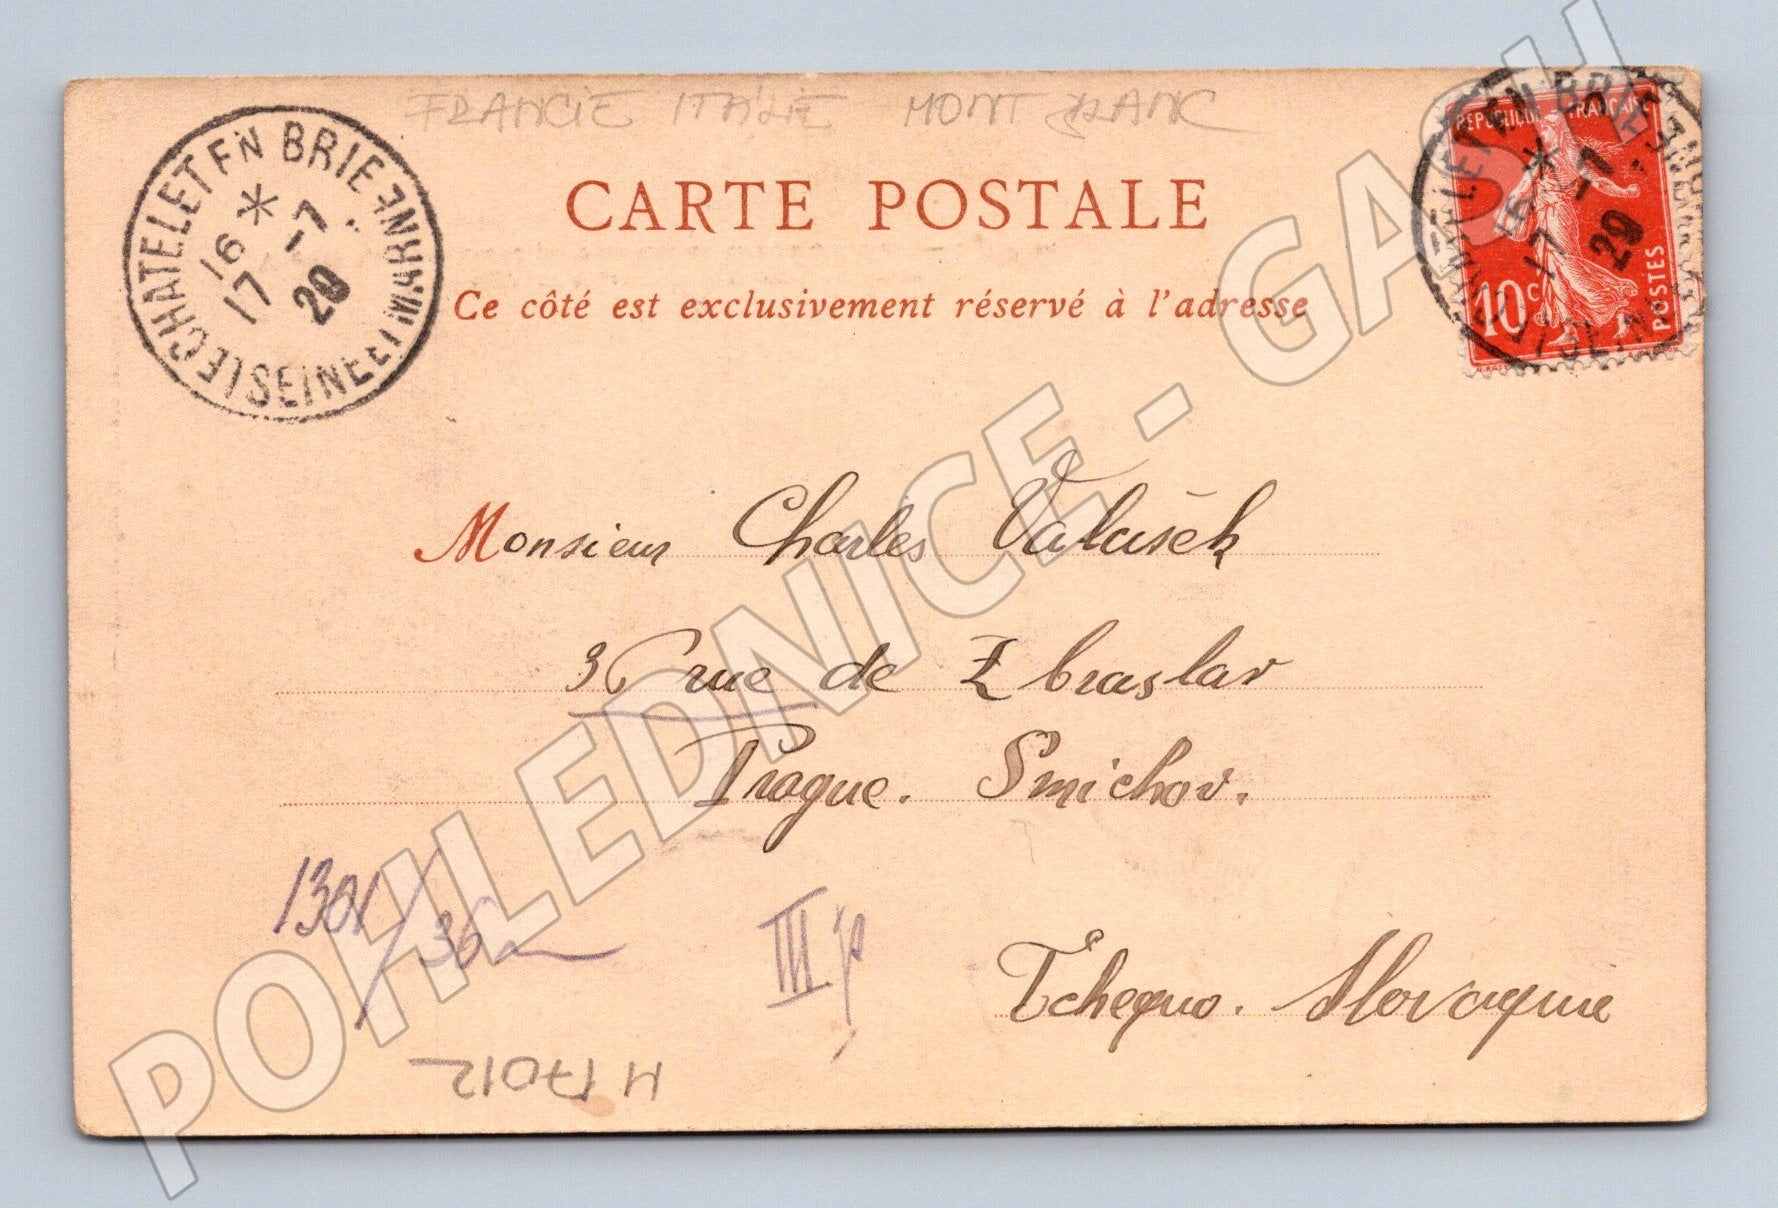 FRANCIE ITALIE MONT BLANC
CARTE POSTALE
Ce côté est exclusivement réservé à l'adresse
LE CHATELET EN BRIE
SEINE ET MARNE
16 * -7
17 20
REPUBLIQUE FRANÇAISE
10 c
POSTES
16 * -7
17 20
Monsieur Charles Valašek
36 rue de Zbraslav
Prague. Smichov.
1301/36
III
Tchequo. Slovaquie
H 17012
POHLEDNICE - GASH